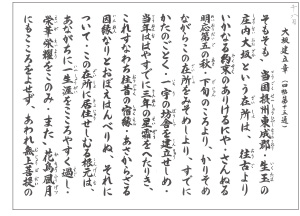 大坂建立章（四帖第十五通）
そもそも、当国摂州東成郡、生玉の
庄内大坂という在所は、往古より
いかなる約束のありけるにや、さんぬる
明応第五の秋、下旬のころより、かりそめ
ながらこの在所をみそめしより、すでに
かたのごとく、一宇の坊舎を建立せしめ、
当年ははやすでに三年の星霜をへたりき。
これすなわち往昔の宿縁、あさからざる
因縁なりとおぼえはんべりぬ。それに
ついて、この在所に居住せしむる根元は、
あながちに一生涯をこころやすく過し、
栄華栄耀をこのみ、また、花鳥風月
にもこころをよせず、あわれ無上菩提の